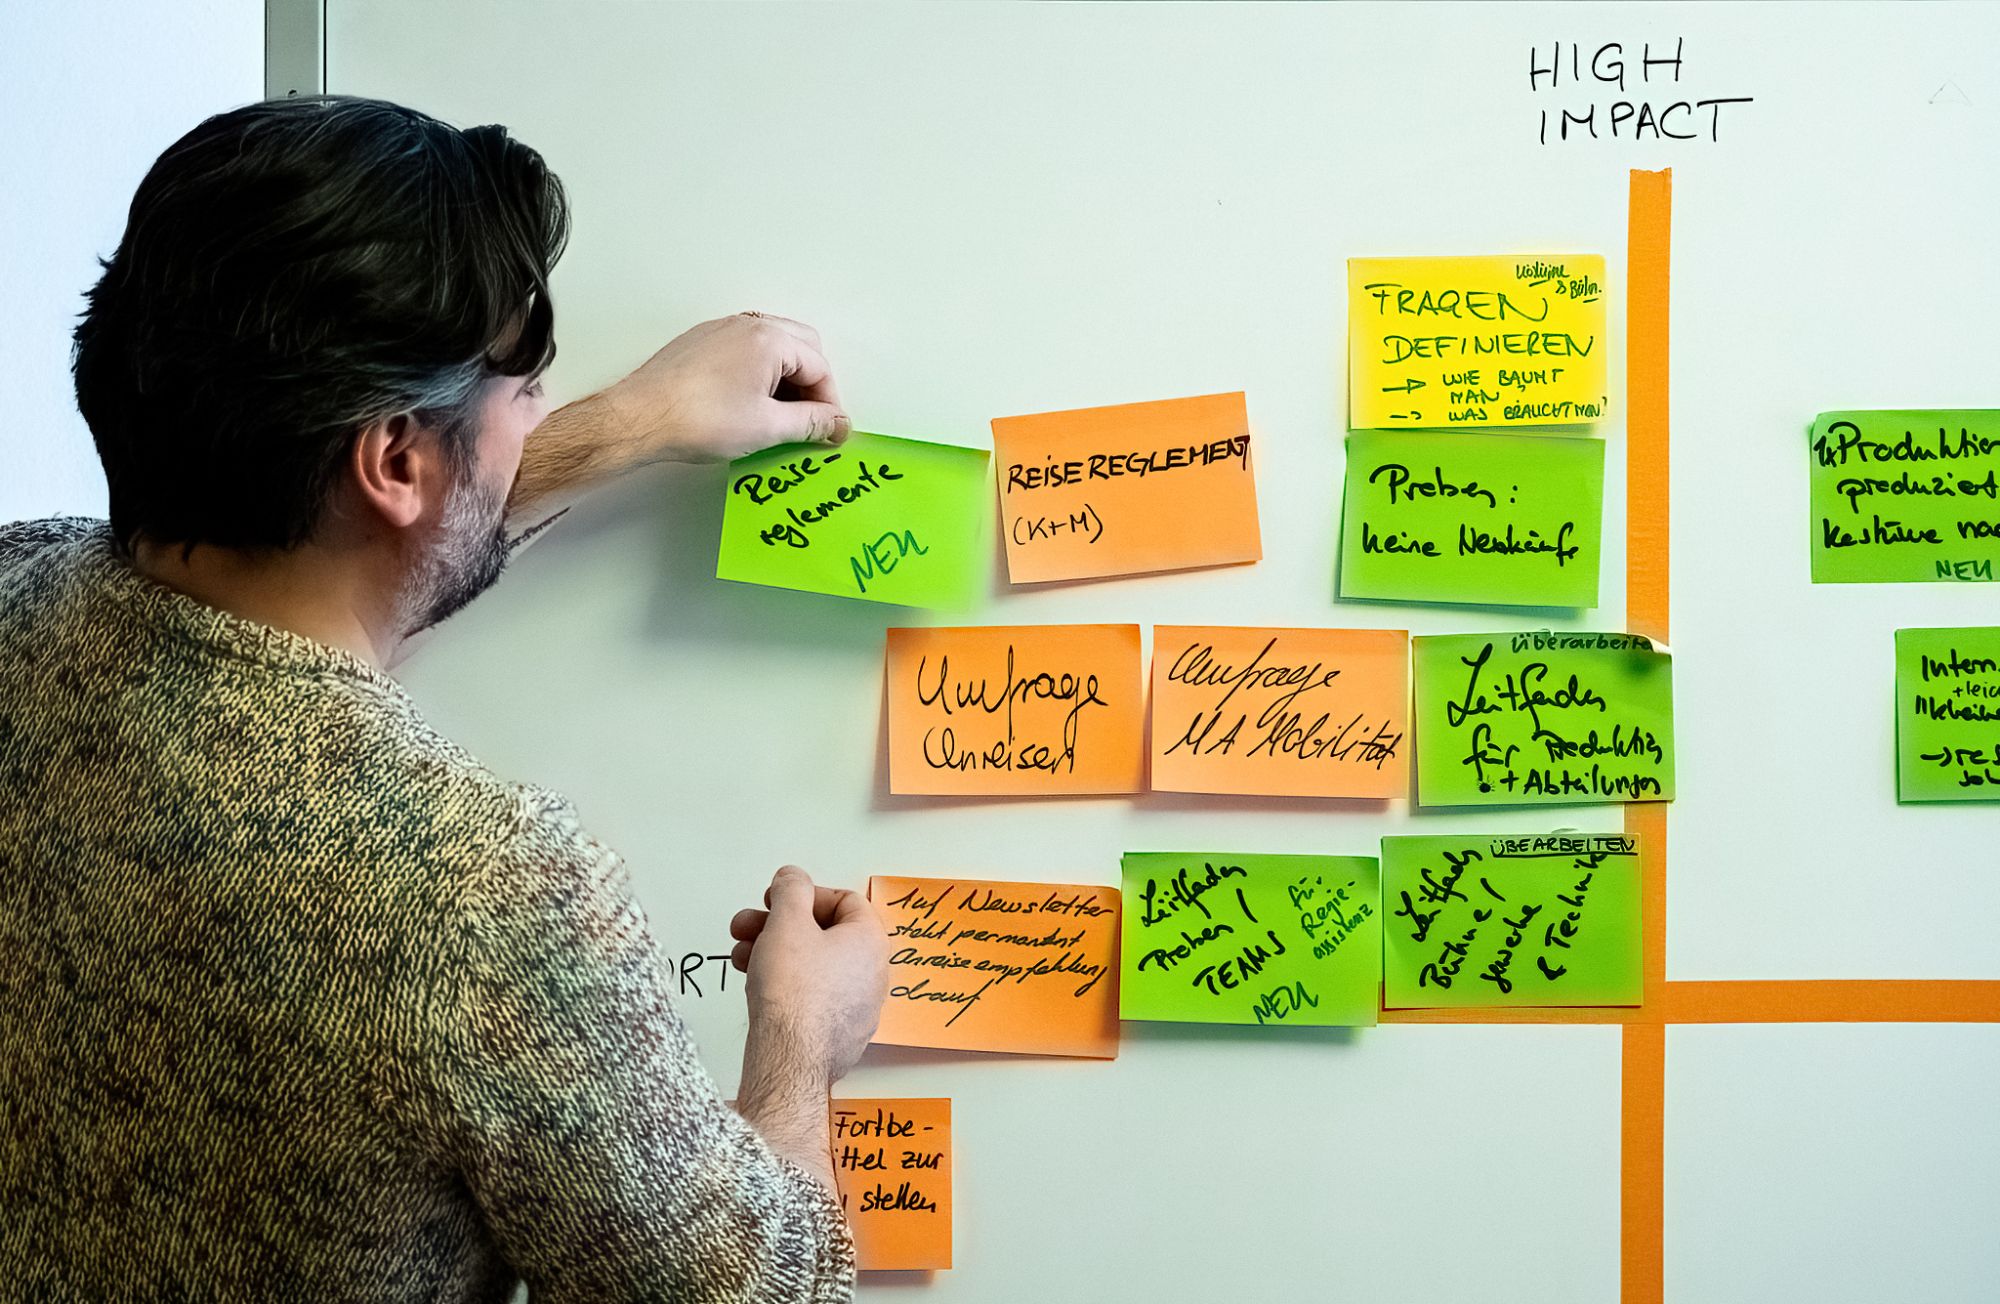 HIGH
IMPACT
Kostüme
& Bühn.
FRAGEN
DEFINIEREN
→ WIE BAUMT
MAN
→ WAS BRAUCHT MAN?
Reise-
reglemente
NEU
REISEREGLEMENT
(K+M)
Proben:
keine Neukäufe
1x Produktion
produziert
Kostüme nac
NEU
Umfrage
Anreisen
Umfrage
MA Mobilität
überarbeite
Leitfaden
für Produktion
+ Abteilungen
Intern.
+leic
→ res
Auf Newsletter
steht permanent
Anreiseempfehlung
drauf
Leitfaden
Proben /
TEAMS
für
Regie-
assistenz
NEU
ÜBEARBEITEN
Leitfaden
Bühne /
Gewerke
& Technik
ORT
Fortbe-
ittel zur
stellen